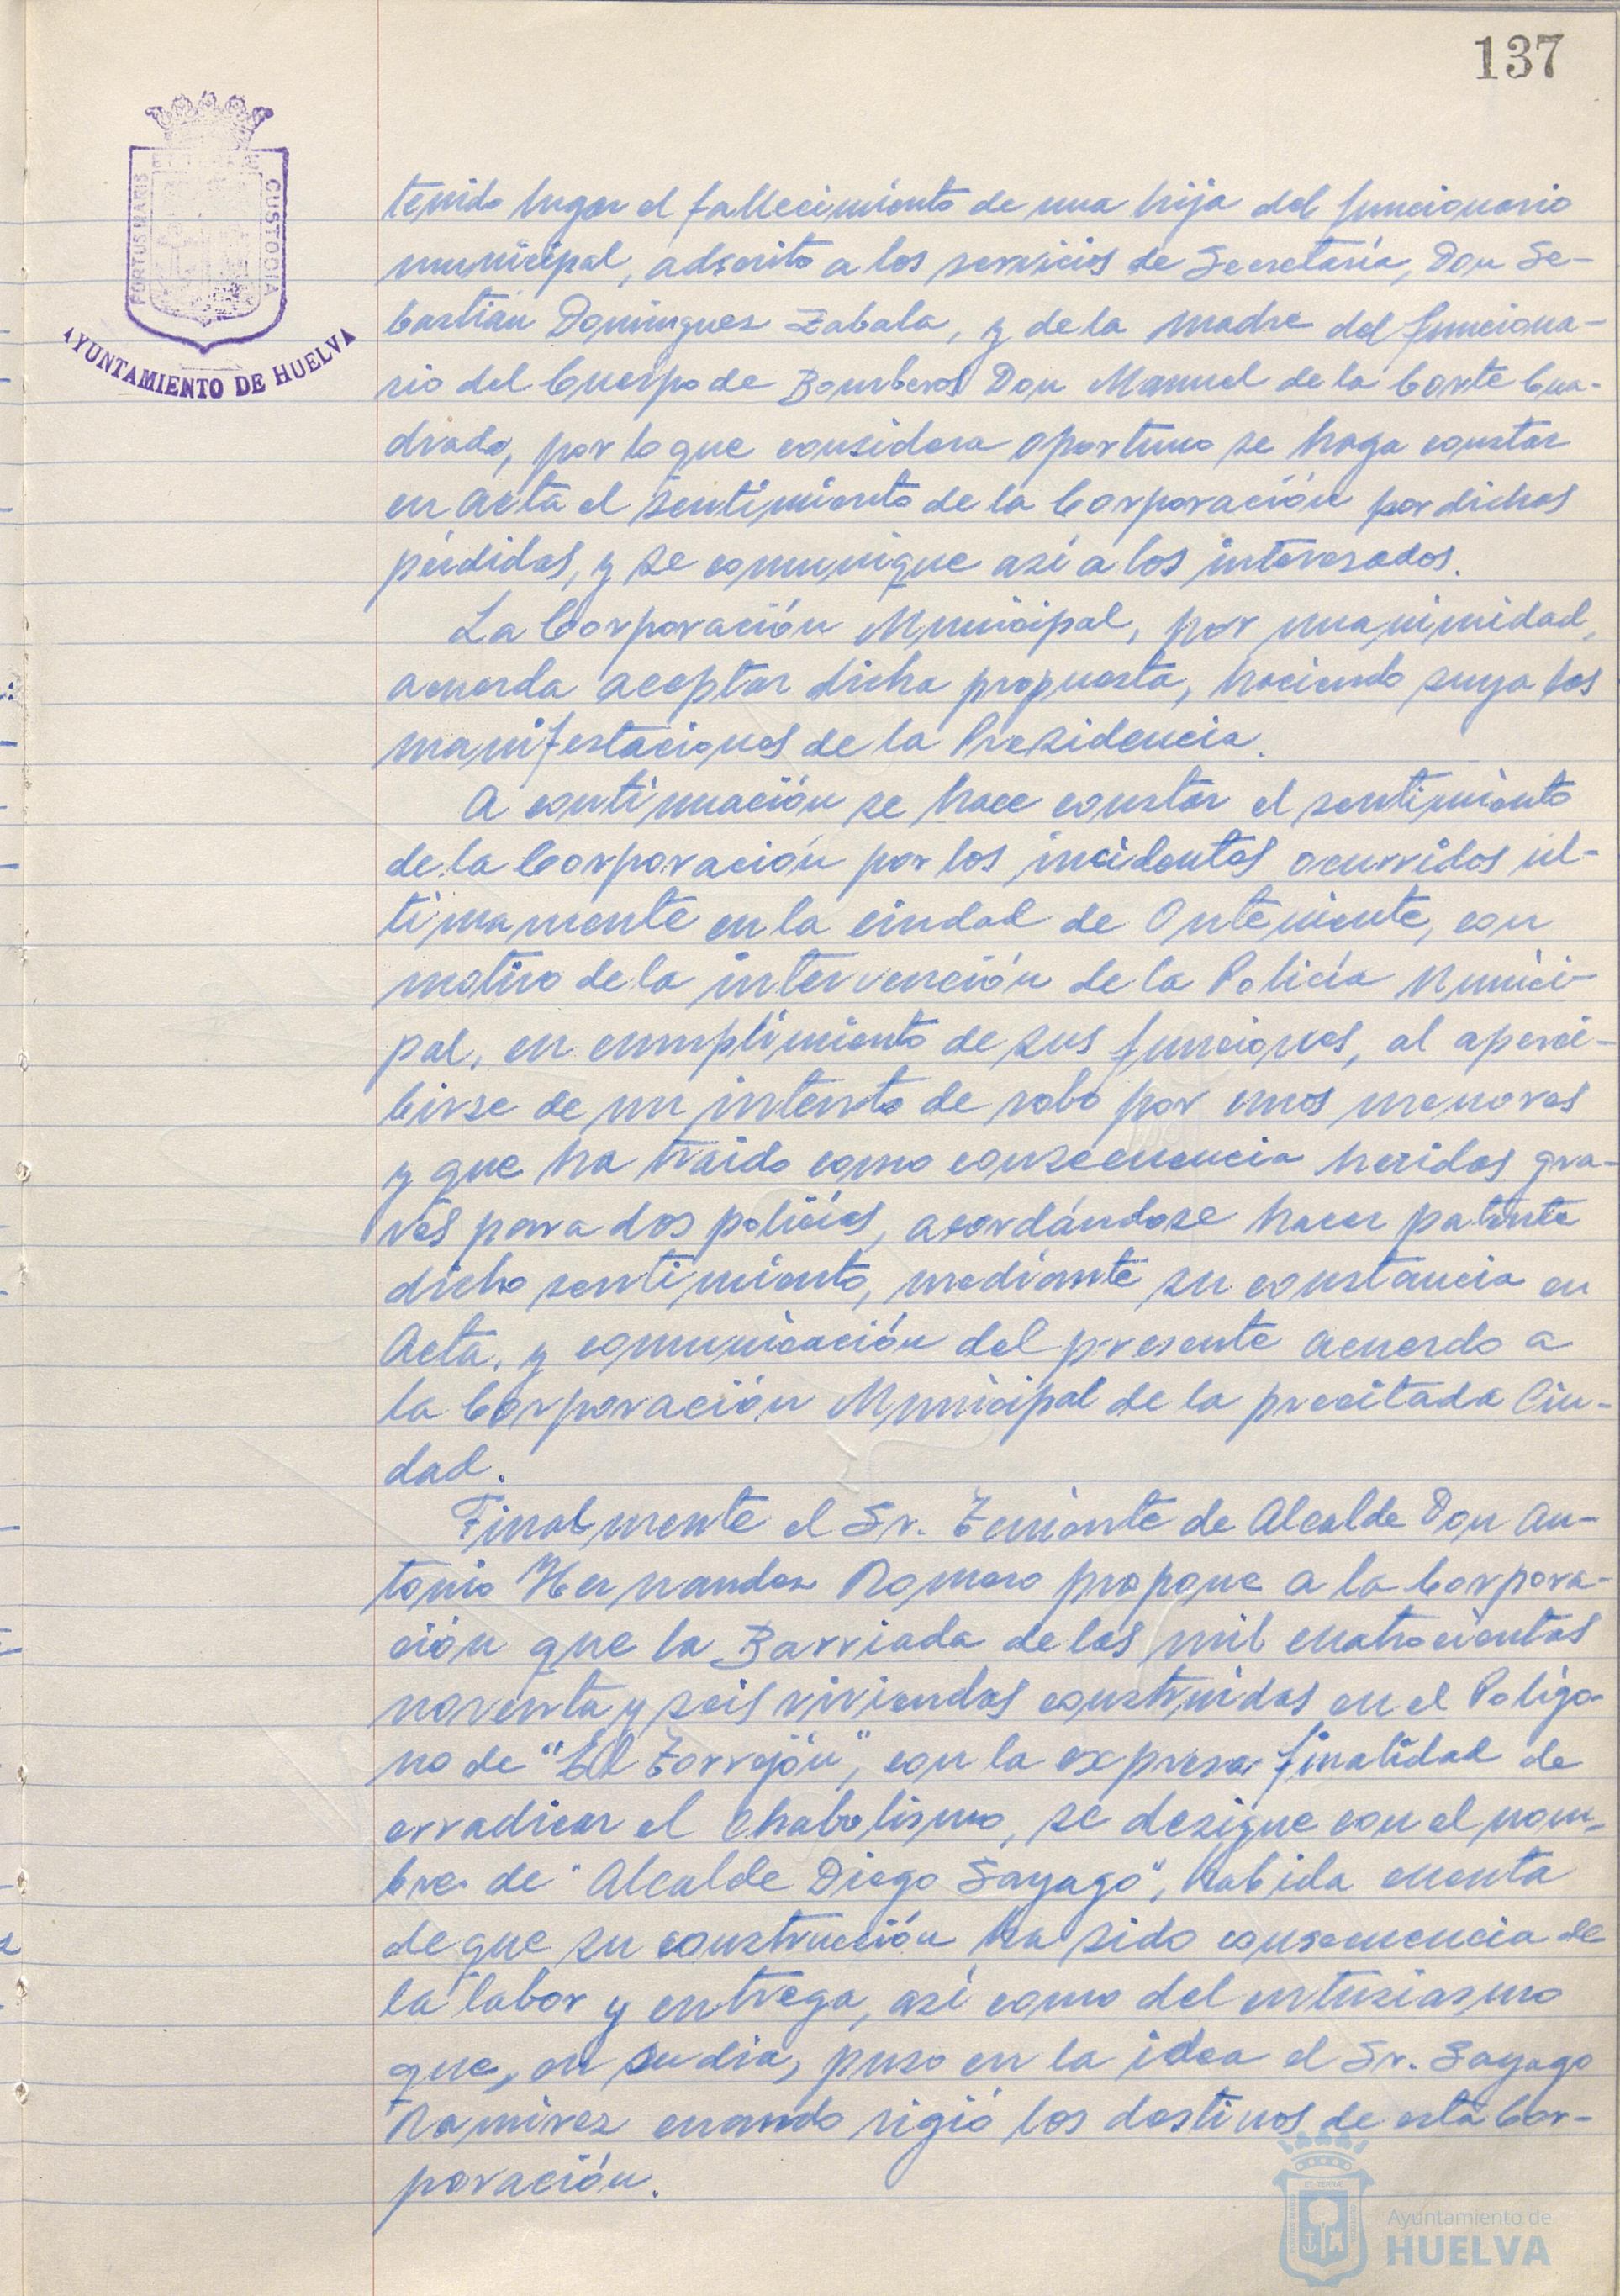 137
PORTUS MARIS
ET TERRE
CUSTODIA
AYUNTAMIENTO DE HUELVA
tenido lugar el fallecimiento de una hija del funcionario
municipal, adscrito a los servicios de Secretaría, Don Se-
bastián Domínguez Zabala, y de la madre del funciona-
rio del Cuerpo de Bomberos Don Manuel de la Corte Cua-
drado, por lo que considera oportuno se haga constar
en Acta el sentimiento de la Corporación por dichas
pérdidas, y se comunique así a los interesados.
La Corporación Municipal, por unanimidad,
acuerda aceptar dicha propuesta, haciendo suya las
manifestaciones de la Presidencia.
A continuación se hace constar el sentimiento
de la Corporación por los incidentes ocurridos úl-
timamente en la ciudad de Onteniente, con
motivo de la intervención de la Policía Munici-
pal, en cumplimiento de sus funciones, al aperci-
birse de un intento de robo por unos menores
y que ha traido como consecuencia heridas gra-
ves para dos policías, acordándose hacer patente
dicho sentimiento, mediante su constancia en
Acta, y comunicación del presente acuerdo a
la Corporación Municipal de la precitada Ciu-
dad.
Finalmente el Sr. Teniente de Alcalde Don An-
tonio Hernandez Romero propone a la Corpora-
ción que la Barriada de las mil cuatrocientas
noventa y seis viviendas construidas en el Polígo-
no de "El Torrejón", con la expresa finalidad de
erradicar el chabolismo, se designe con el nom-
bre de "Alcalde Diego Sayago", habida cuenta
de que su construcción ha sido consecuencia de
la labor y entrega, así como del entusiasmo
que, en su dia, puso en la idea el Sr. Sayago
Ramirez cuando rigió los destinos de esta Cor-
poración.
Ayuntamiento de
HUELVA